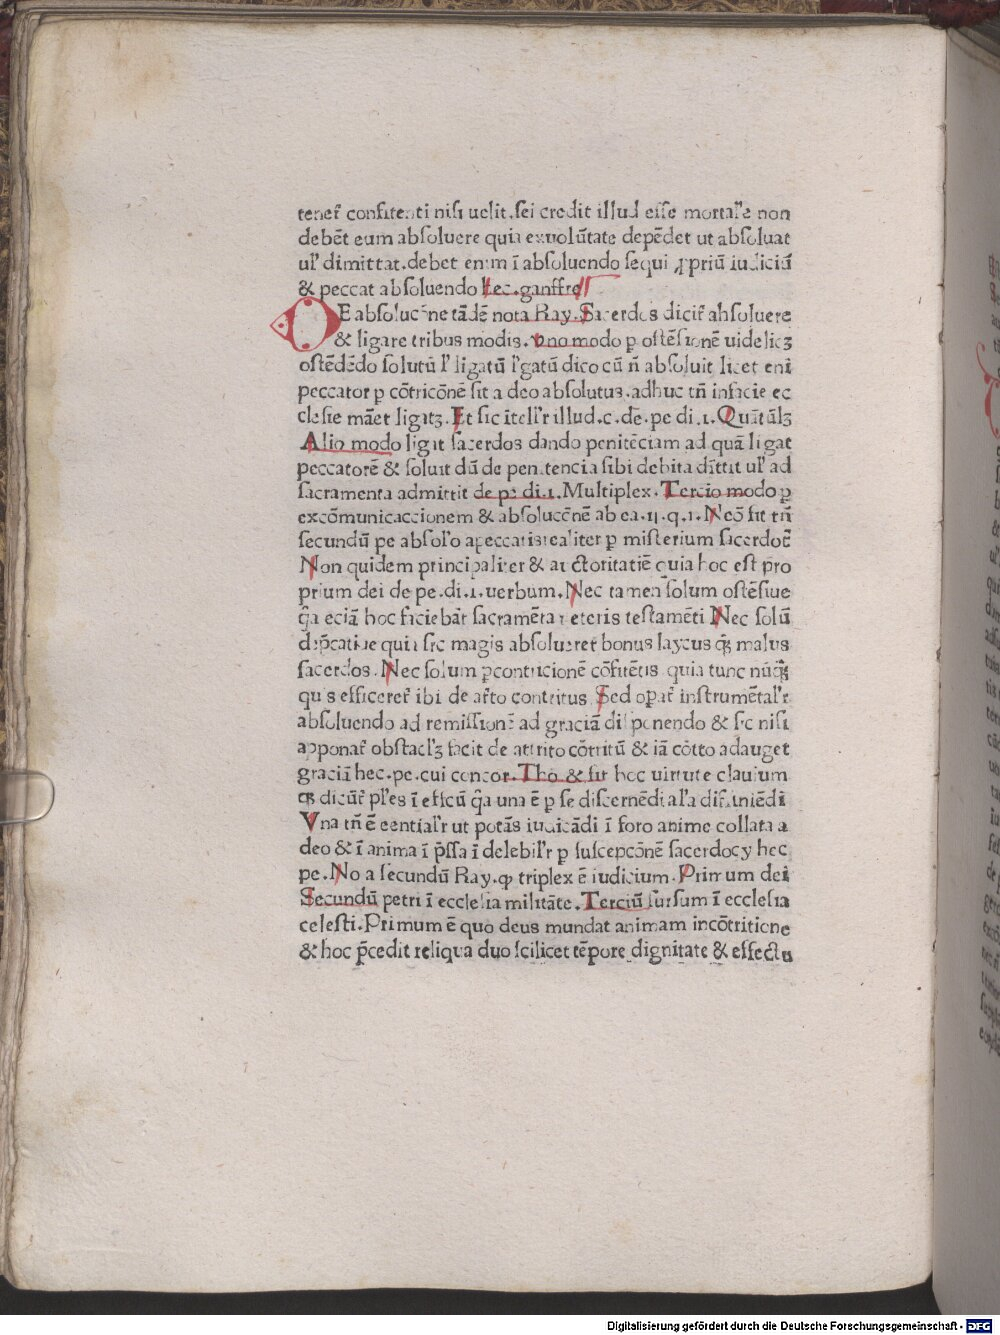 tenet᷑ confitenti nisi uelit.sei credit illud esse mortal'e non
debēt eum absoluere quia exuolūtate depēdet ut absoluat
ul' dimittat.debet enim ī absoluendo sequi ꝓpriū iudiciū
& peccat absoluendo hec.ganffre
DE absolucōne tādē nota Ray.Sacerdos dicit᷑ absoluere
& ligare tribus modis.vno modo p ostēsionē uidelicꝫ
ostēdēdo solutū l' ligatū l'gatū dico cū n̄ absoluit licet eni
peccator p cōtricōnē sit a deo absolutus.adhuc tn̄ infacie ec
clesie māet ligatꝫ.Et sic ītell'r illud.c.dē.pe di.1.Quātūlꝫ
Alio modo ligat sacerdos dando penitēciam ad quā ligat
peccatorē & soluit dū de penitencia sibi debita dīttit ul' ad
sacramenta admittit de pe di.1.Multiplex.Tercio modo p
excōmunicaccionem & absolucōnē ab ea.11.q.1.Necō sit tn̄
secundū pe absol'o apeccatis realiter p misterium sacerdotē
Non quidem principaliter & auctoritatiē quia hoc est pro
prium dei de pe.di.1.uerbum.Nec tamen solum ostēsiue
q̄a eciā hoc faciebāt sacramēta ueteris testamēti Nec solū
dep̄catiue quia sic magis absolueret bonus laycus qꝫ malus
sacerdos.Nec solum pcontricionē cōfitētis quia tunc nūqꝫ
quis efficeret᷑ ibi de at'to contritus Sed opat᷑ instrumētal'r
absoluendo ad remissionē ad graciā disponendo & sic nisi
apponat᷑ obstacl'ꝫ facit de attrito cōtritū & iā cōtto adauget
graciā hec.pe.cui concor.Tho & sit hec uirtute clauium
qꝫ dicūt᷑ pl'es ī effcū q̄a una ē p se discernēdi al'a diffiniēdi
Vna tn̄ ē eential'r ut potās iudicādi ī foro anime collata a
deo & ī anima ī p̄ssa ī delebil'r p suscepcōnē sacerdocy hec
pe.No a secundū Ray.ꝙ triplex ē iudicium.Primum dei
Secundū petri ī ecclesia militāte.Terciū sursum ī ecclesia
celesti.Primum ē quo deus mundat animam incōtritione
& hoc p̄cedit reliqua duo scilicet tēpore dignitate & effectu
Digitalisierung gefördert durch die Deutsche Forschungsgemeinschaft - DFG